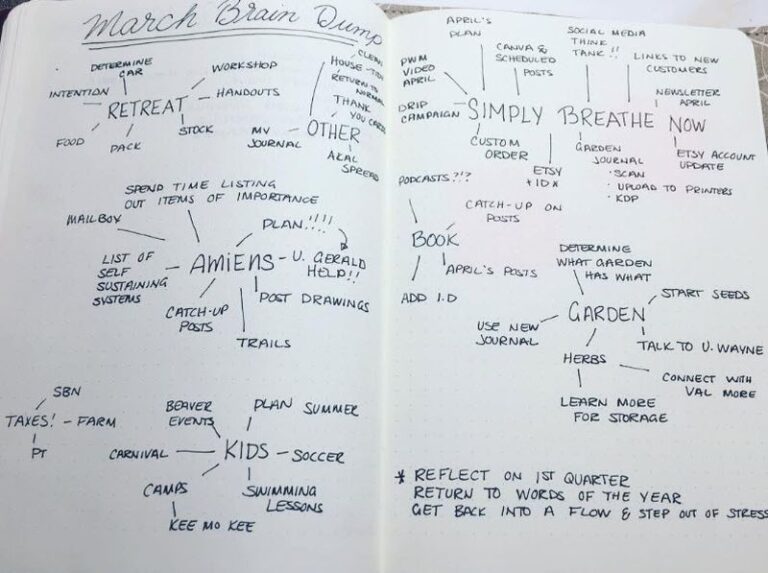 March Brain Dump
DETERMINE
CAR
WORKSHOP
INTENTION
RETREAT
HANDOUTS
FOOD
PACK
STOCK
CLEAN
HOUSE
RETURN TO
NORMAL
THANK
YOU CARDS
MV
JOURNAL
OTHER
AKAL
SPREAD
SPEND TIME LISTING
OUT ITEMS OF IMPORTANCE
MAILBOX
PLAN!!!!
LIST OF
SELF
SUSTAINING
SYSTEMS
AMIENS - U. GERALD
HELP!!
CATCH-UP
POSTS
POST DRAWINGS
TRAILS
SBN
TAXES! - FARM
PT
BEAVER
EVENTS
PLAN SUMMER
CARNIVAL
KIDS - SOCCER
CAMPS
SWIMMING
LESSONS
KEE MO KEE
APRIL'S
PLAN
PWM
VIDEO
APRIL
CANVA &
SCHEDULED
POSTS
SOCIAL MEDIA
THINK
TANK!!
LINKS TO NEW
CUSTOMERS
NEWSLETTER
APRIL
DRIP
CAMPAIGN
SIMPLY BREATHE NOW
CUSTOM
ORDER
ETSY
+ IDX
GARDEN
JOURNAL
• SCAN
• UPLOAD TO PRINTERS
• KDP
ETSY ACCOUNT
UPDATE
PODCASTS?!?
CATCH-UP ON
POSTS
BOOK
APRIL'S POSTS
ADD I.D
DETERMINE
WHAT GARDEN
HAS WHAT
START SEEDS
GARDEN
USE NEW
JOURNAL
TALK TO U. WAYNE
HERBS
CONNECT WITH
VAL MORE
LEARN MORE
FOR STORAGE
* REFLECT ON 1ST QUARTER
RETURN TO WORDS OF THE YEAR
GET BACK INTO A FLOW & STEP OUT OF STRESS